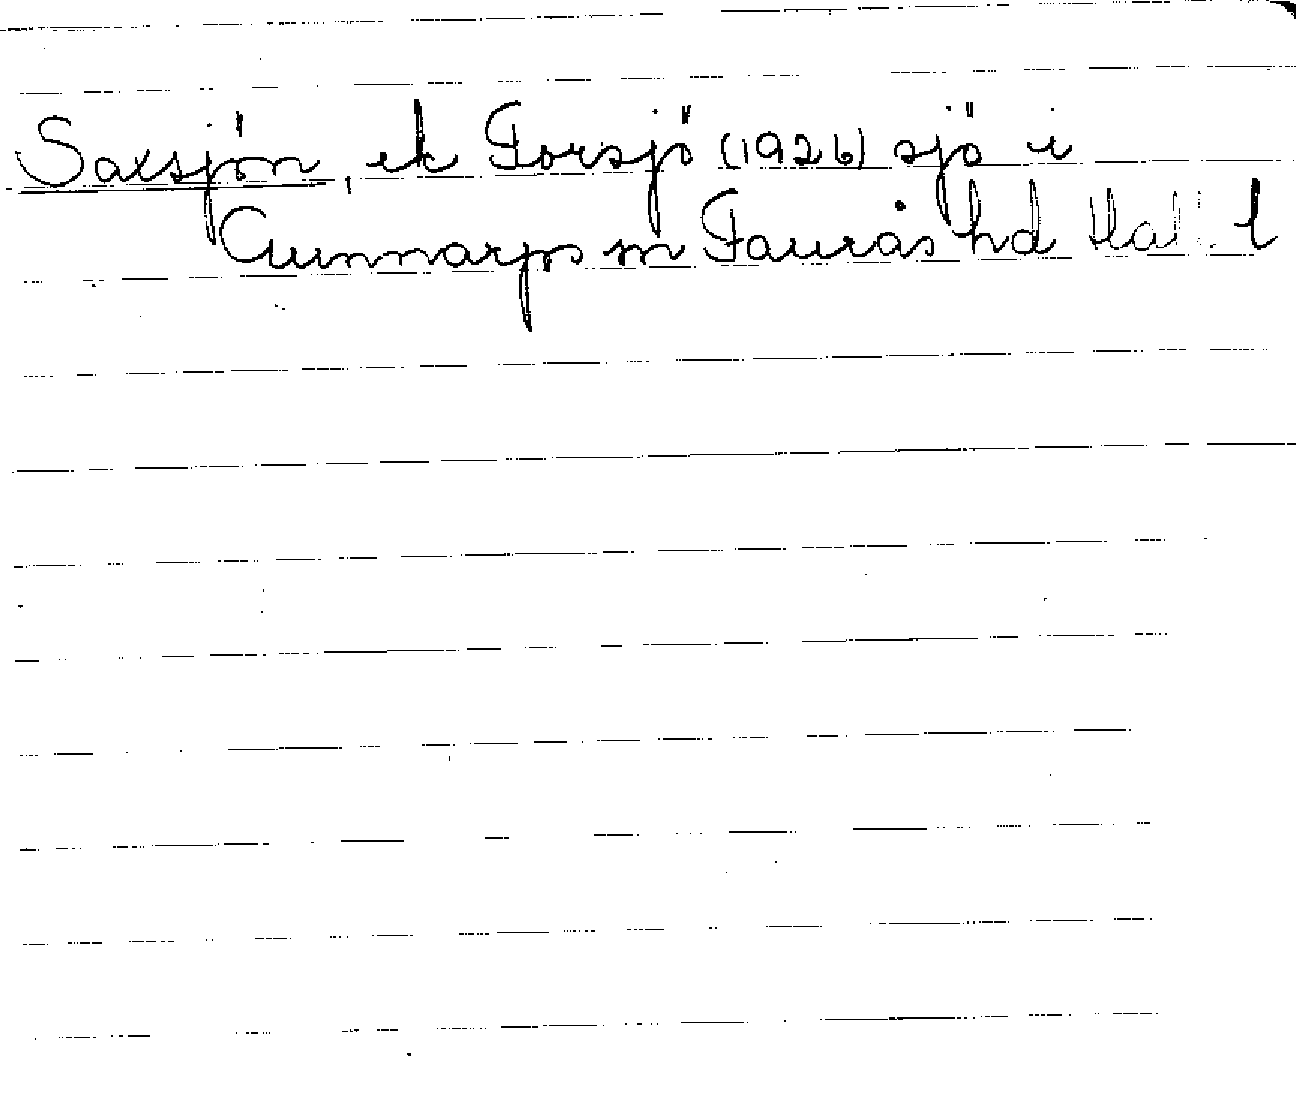 Saxsjön, ek Forsjö (1926) sjö i
Gunnarps sn Faurås hd Hall. l